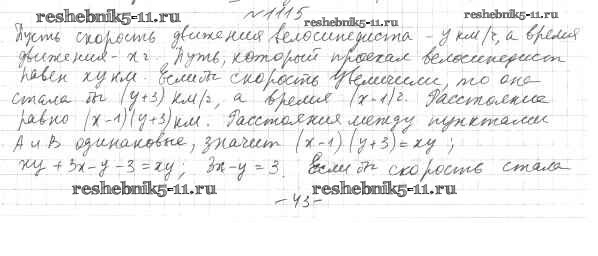 reshebnik5-11.ru №1115 reshebnik5-11.ru
Пусть скорость движения велосипедиста - y км/ч, а время
движения - x ч. Путь, который проехал велосипедист
равен xy км. Если бы скорость увеличили, то она
стала бы (y+3) км/ч, а время (x-1) ч. Расстояние
равно (x-1)(y+3) км. Расстояния между пунктами
A и B одинаковые, значит (x-1)(y+3)=xy;
xy+3x-y-3=xy; 3x-y=3. Если бы скорость стала
reshebnik5-11.ru reshebnik5-11.ru
-43-